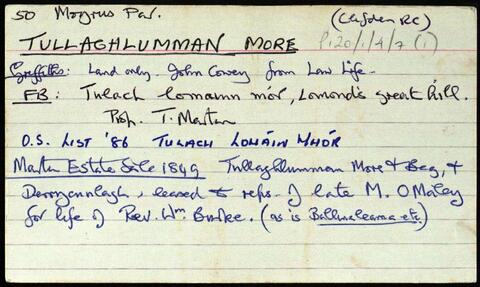 50 Moyrus Par. (Clifden RC)
P.120/1/4/7 (1)
TULLAGHLUMMAN MORE
Griffiths: Land only. John Coney from Law Life.
FB: Tulach lomann mór, Lomond's great hill.
Prop. T. Martin
O.S. LIST '86 TULACH LOMÁIN MHÓR
Martin Estate Sale 1849 Tullaghlumman More & Beg, &
leased to reps. of late M. O Maley
for life of Rev. Wm. Burke. (as is Ballinaleama etc.)